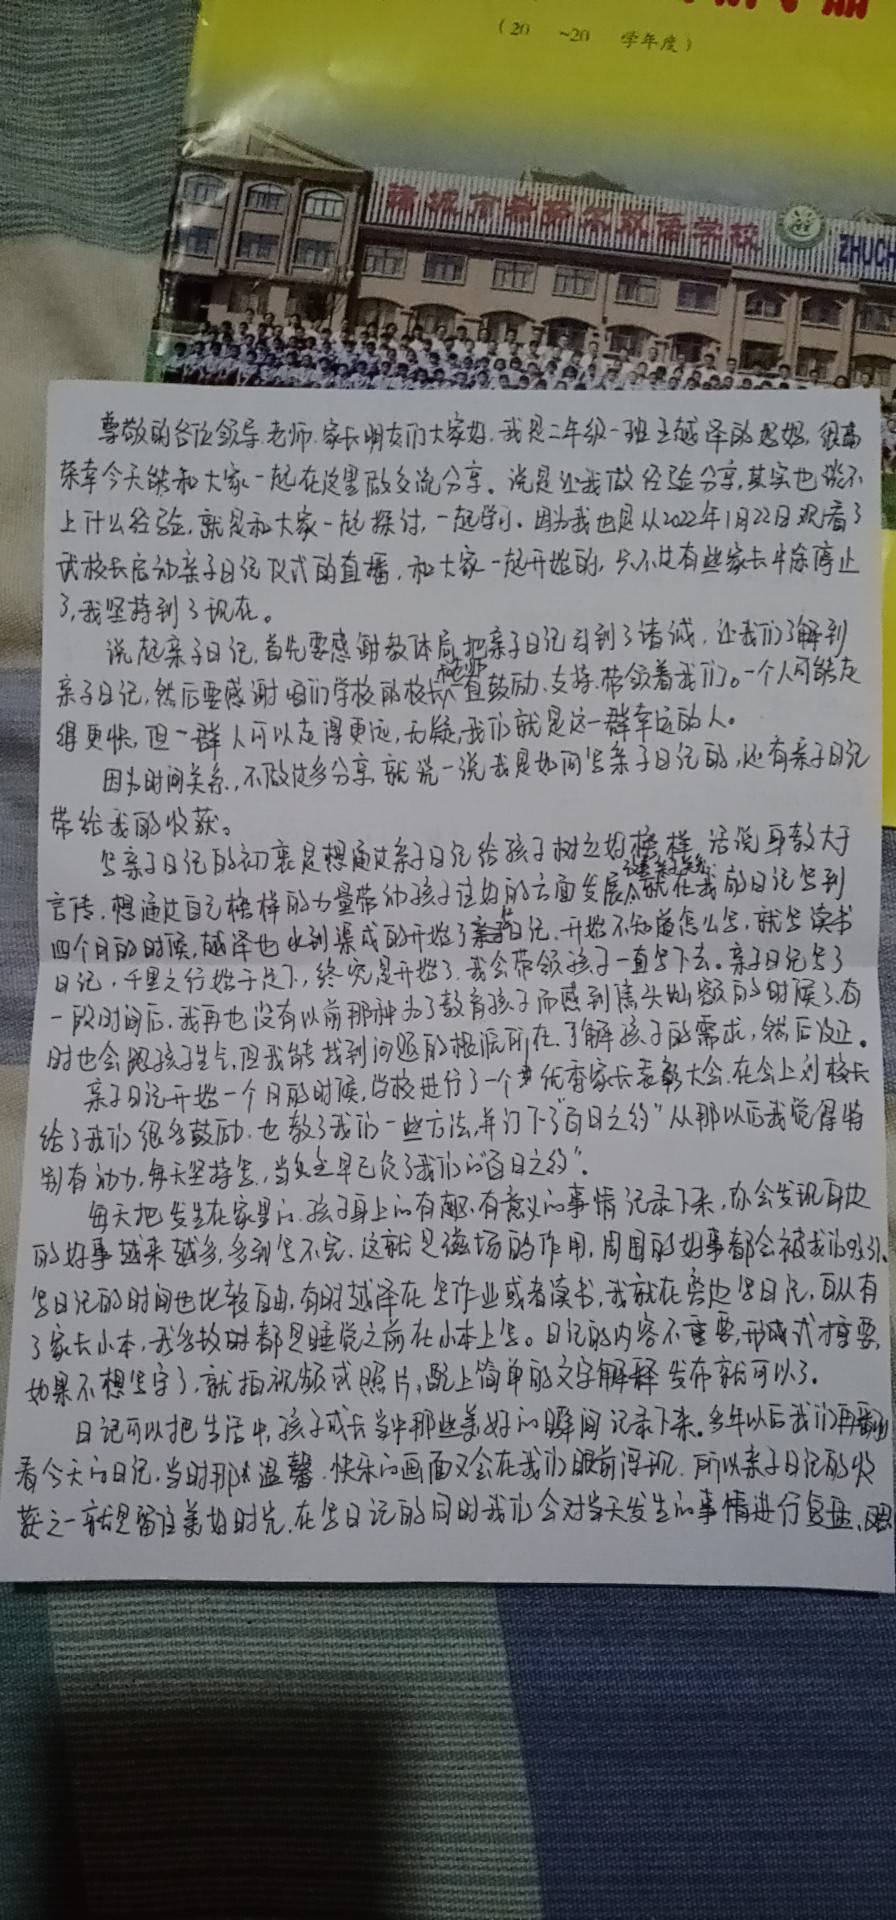 (20 ~20 学年度)
诸城市 双语学校
ZHUCH
尊敬的各位领导、老师、家长朋友们大家好,我是二年级一班王越泽的妈妈,很高
荣幸今天能和大家一起在这里做交流分享。说是让我做经验分享,其实也谈不
上什么经验,就是和大家一起探讨,一起学习。因为我也是从2022年1月22日观看了
武校长启动亲子日记仪式的直播,和大家一起开始的,只不过有些家长半途停止
了,我坚持到了现在。
说起亲子日记,首先要感谢教体局把亲子日记引到了诸城,让我们了解到
亲子日记,然后要感谢咱们学校的校长和老师一直鼓励、支持、带领着我们。一个人可能走
得更快,但一群人可以走得更远,无疑,我们就是这一群幸运的人。
因为时间关系,不做过多分享,就说一说我是如何写亲子日记的,还有亲子日记
带给我的收获。
写亲子日记的初衷是想通过亲子日记给孩子树立好榜样,话说身教大于
言传,想通过自己榜样的力量带动孩子往好的方面发展,就在我的日记写到
四个月的时候,越泽也水到渠成的开始了写日记,开始不知道怎么写,就写读书
日记,千里之行始于足下,终究是开始了,我会带领孩子一直写下去。亲子日记写了
一段时间后,我再也没有以前那种为了教育孩子而感到焦头烂额的时候了,有
时也会跟孩子生气,但我能找到问题的根源所在,了解孩子的需求,然后改正。
亲子日记开始一个月的时候,学校进行了一个优秀家长表彰大会,在会上刘校长
给了我们很多鼓励,也教了我们一些方法,并订下了"百日之约"从那以后我觉得特
别有动力,每天坚持写,当然至早已负了我们的"百日之约"。
每天把发生在家里的、孩子身上的有趣、有意义的事情记录下来,你会发现身边
的好事越来越多,多到写不完,这就是磁场的作用,周围的好事都会被我们吸引。
写日记的时间也比较自由,有时越泽在写作业或者读书,我就在旁边写日记,自从有
了家长小本,我多数时都是睡觉之前在小本上写。日记的内容不重要,形式才重要,
如果不想写字了,就拍视频或照片,配上简单的文字解释发布就可以了。
日记可以把生活中,孩子成长当中那些美好的瞬间记录下来。多年以后我们再翻
看今天的日记,当时那些温馨、快乐的画面又会在我们眼前浮现,所以亲子日记的收
获之一就是留住美好时光,在写日记的同时我们会对当天发生的事情进行复盘、